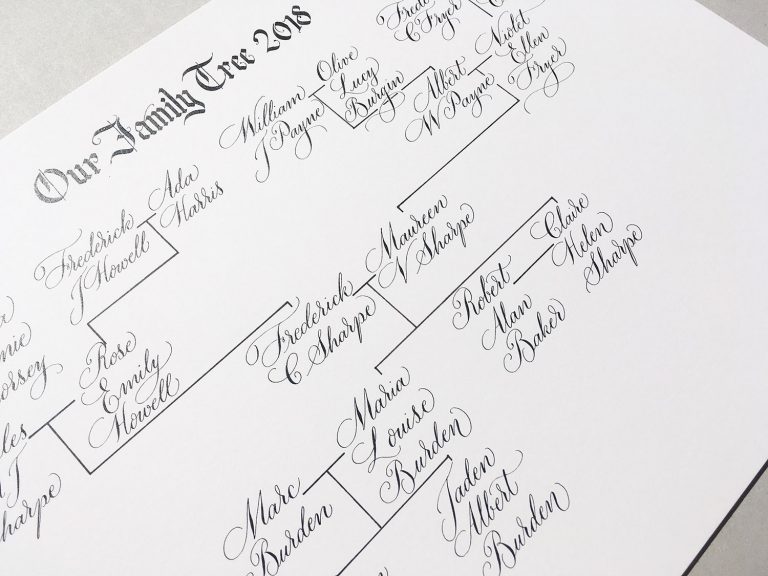 Our Family Tree 2018
Fryer
C Fryer
Violet
Ellen
Fryer
Olive
Lucy
Burgin
William
J Payne
Albert
W Payne
Ada
Harris
Frederick
J Howell
Maureen
N Sharpe
Claire
Helen
Sharpe
Frederick
C Sharpe
Robert
Alan
Baker
Rose
Emily
Howell
Maria
Louise
Burden
Marc
Burden
Jaden
Albert
Burden